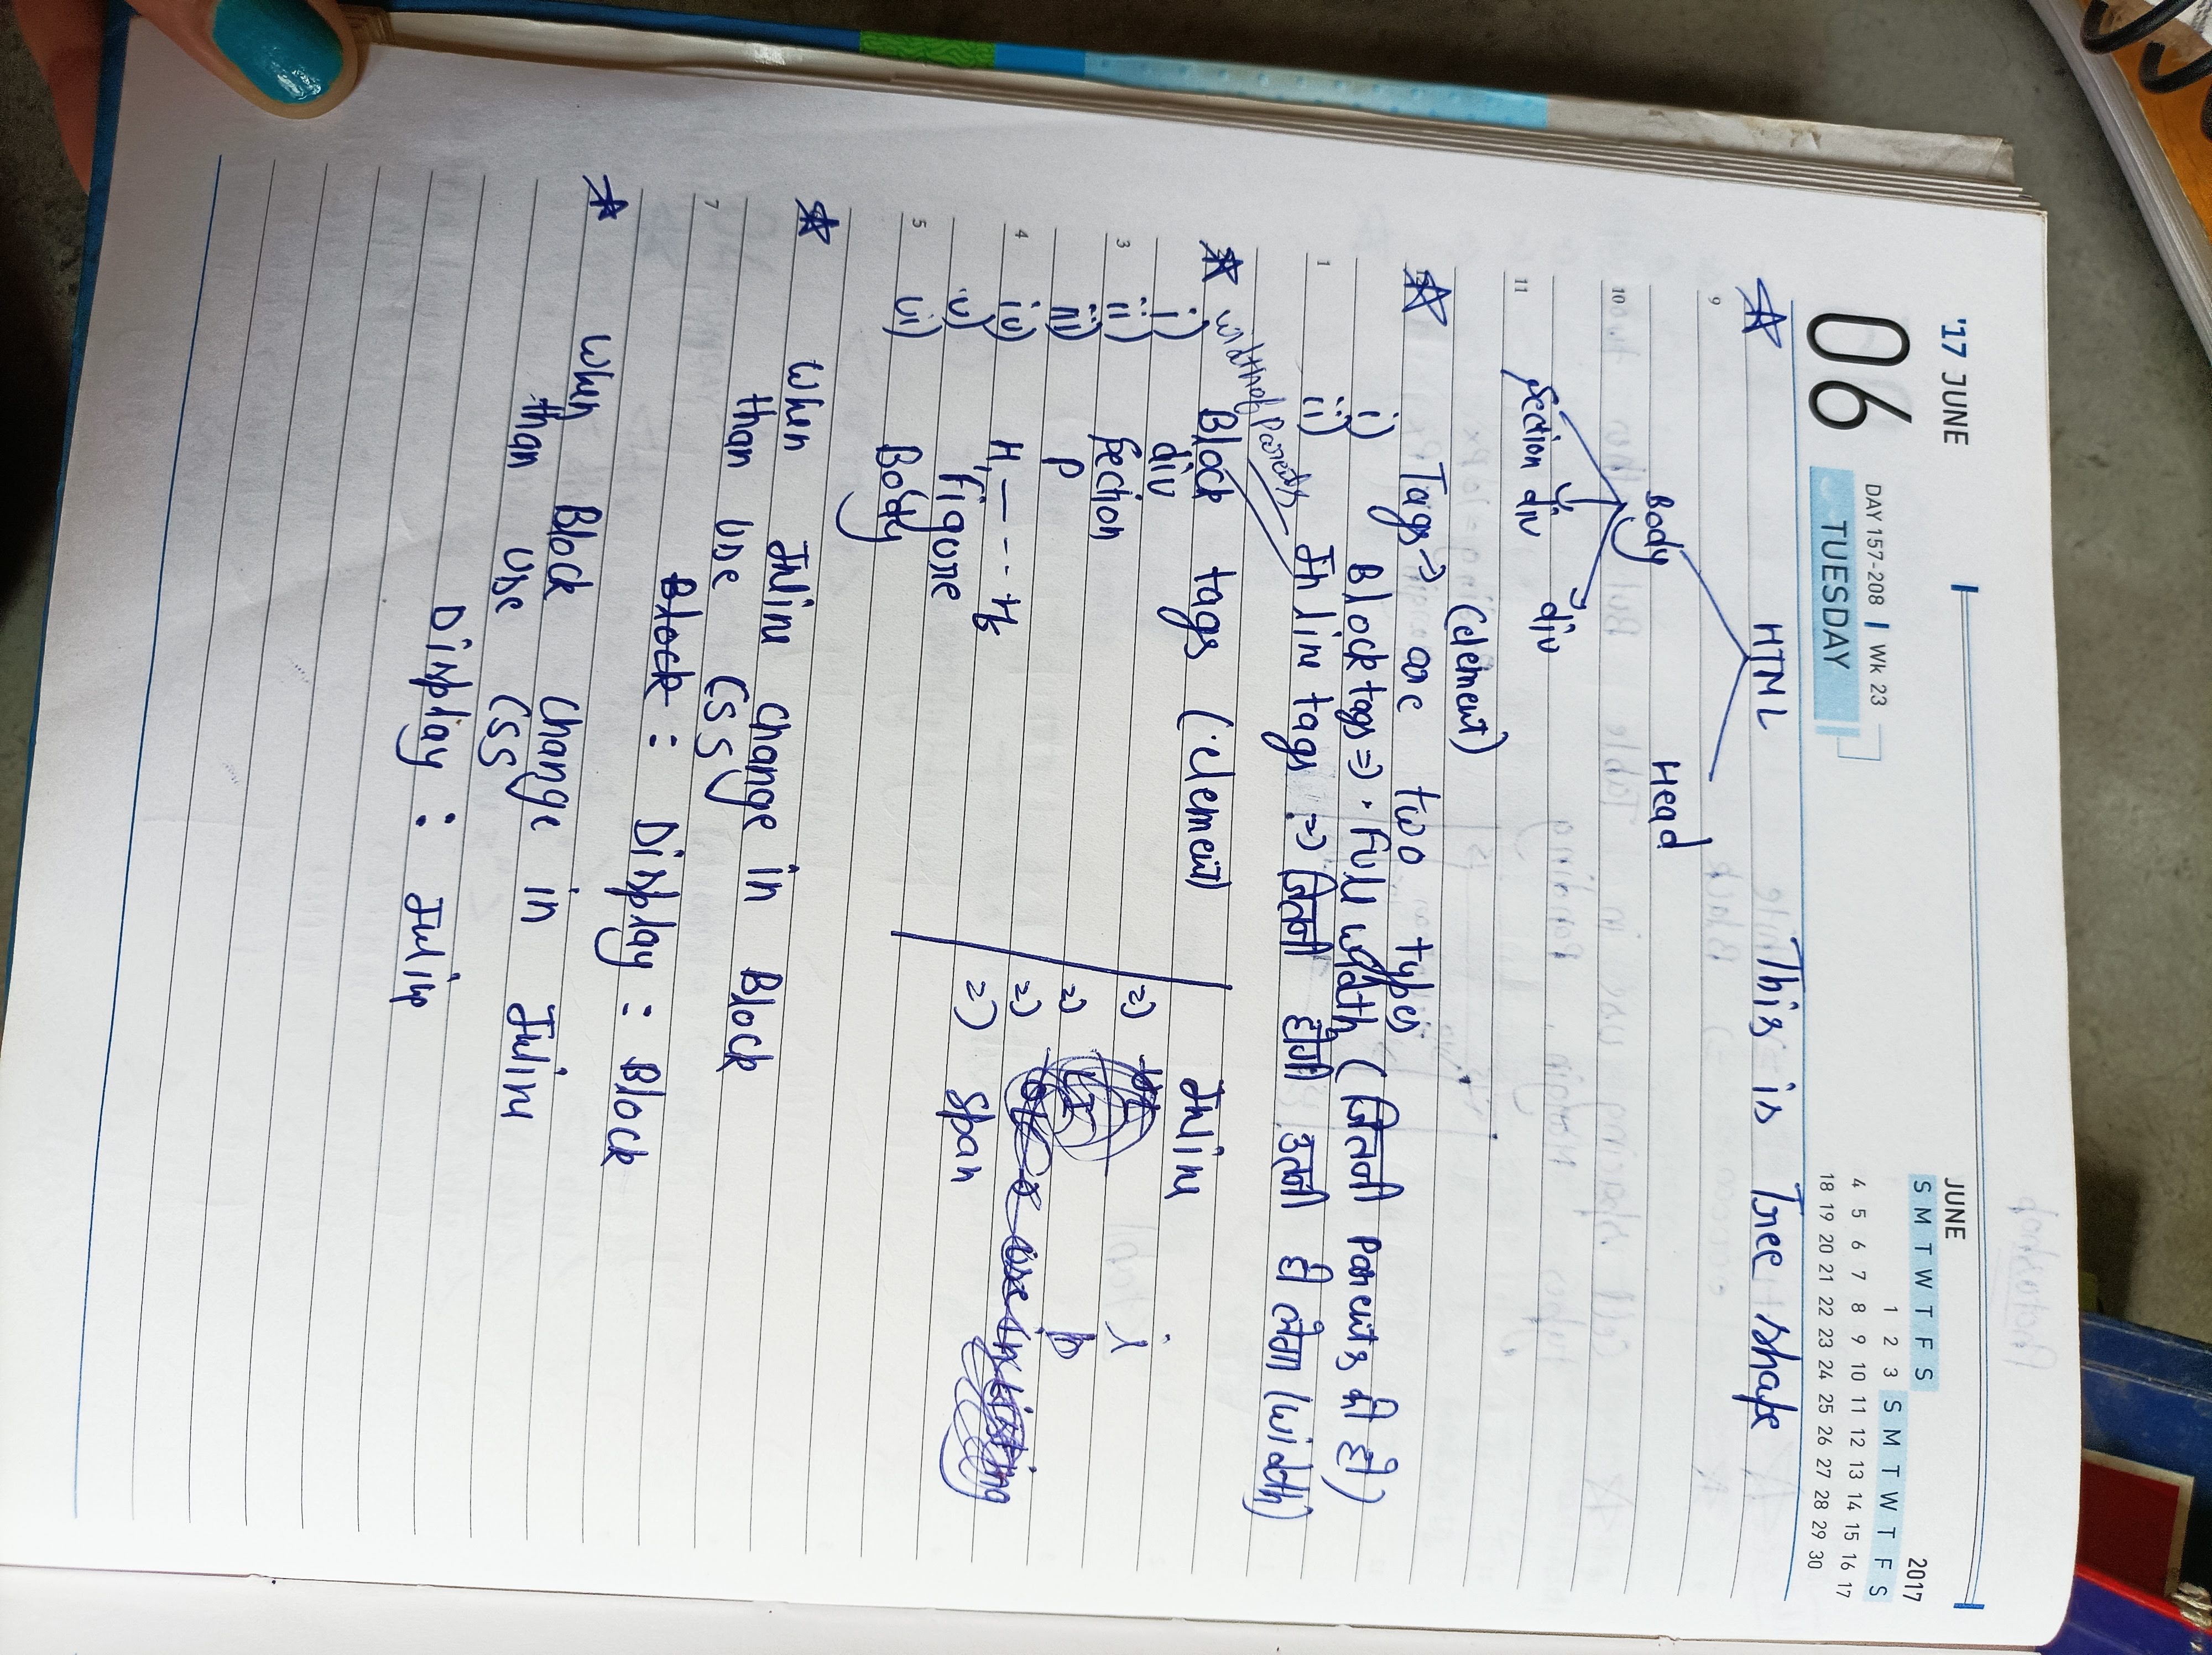 '17 JUNE
06
DAY 157-208 | Wk 23
TUESDAY
JUNE
2017
S M T W T F S
1 2 3 S M T W T F S
4 5 6 7 8 9 10 11 12 13 14 15 16 17
18 19 20 21 22 23 24 25 26 27 28 29 30
HTML This is Tree shape
9
Body Head
10
Section div div
11
(element)
Tags => are two types
i) Block tags => . Full width (जितनी Parents की हो)
1
ii) Inline tags => जितनी होगी उतनी ही लेगा (width)
width of Parents
Block tags (element) Inline
i) div => UL i
3
ii) Section => LI b
iii) P => OL use in Listing
4
iv) H1 — - - - H6 => Span
v) Figure
5
vi) Body
When Inline change in Block
than use CSS
7
Block : Display : Block
When Block change in Inline
than use CSS
Display : Inline